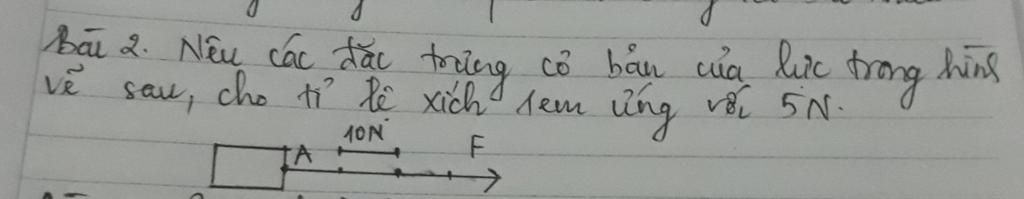 Bài 2. Nêu các đặc trưng cơ bản của lực trong hình
vẽ sau, cho tỉ lệ xích 1cm ứng với 5N.
10N
A
F